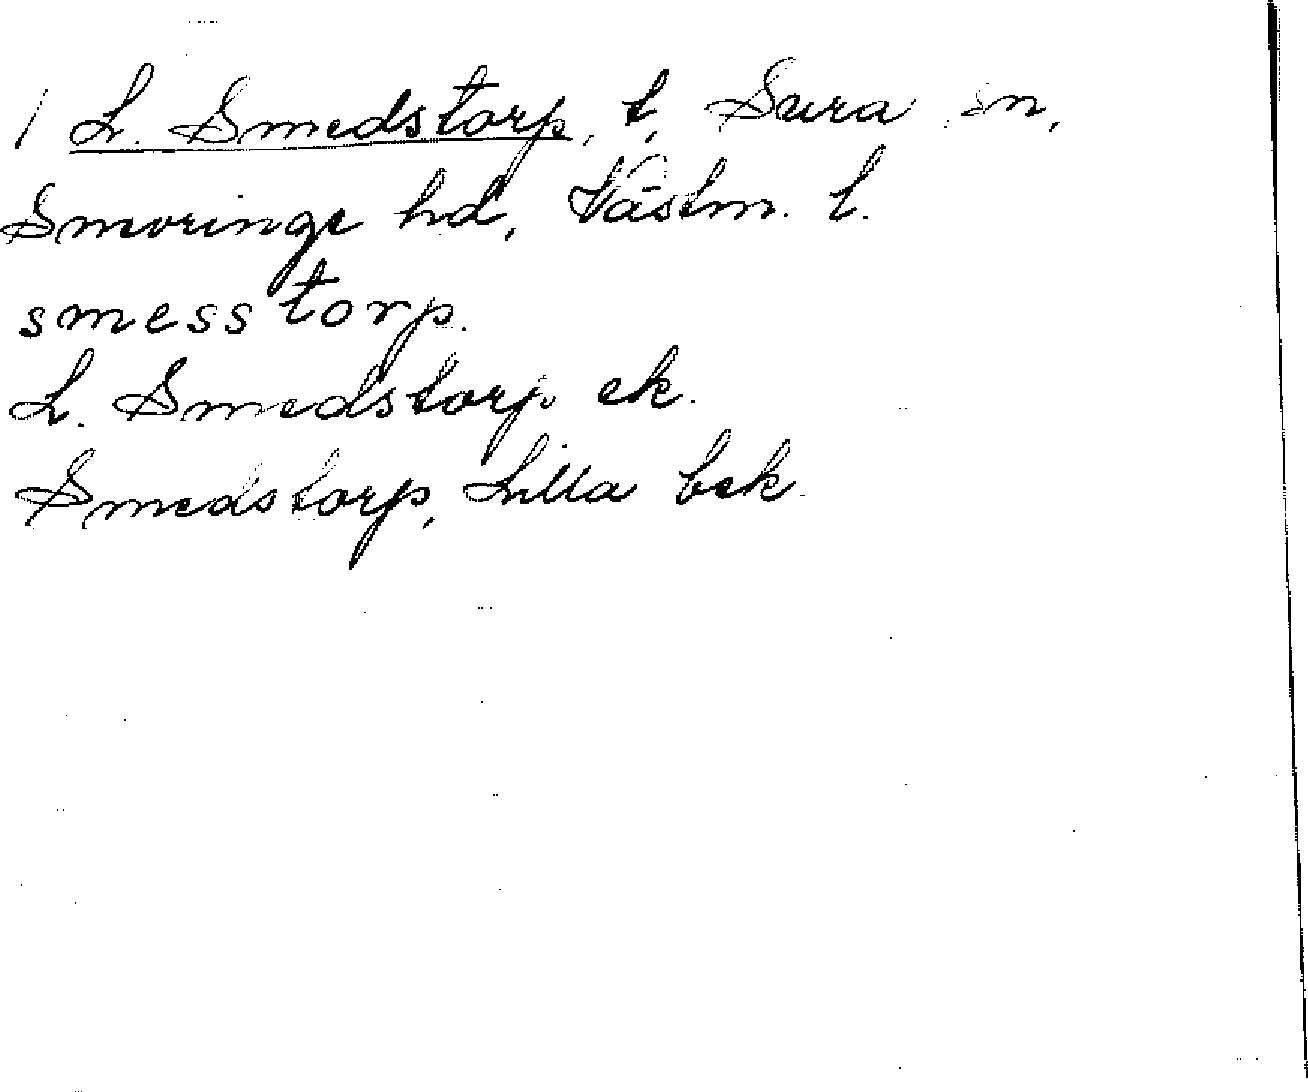 L. Smedstorp, t, Sura sn,
Snevringe hd, Västm. l.
smesstorp.
L. Smedstorp ek.
Smedstorp, Lilla bek